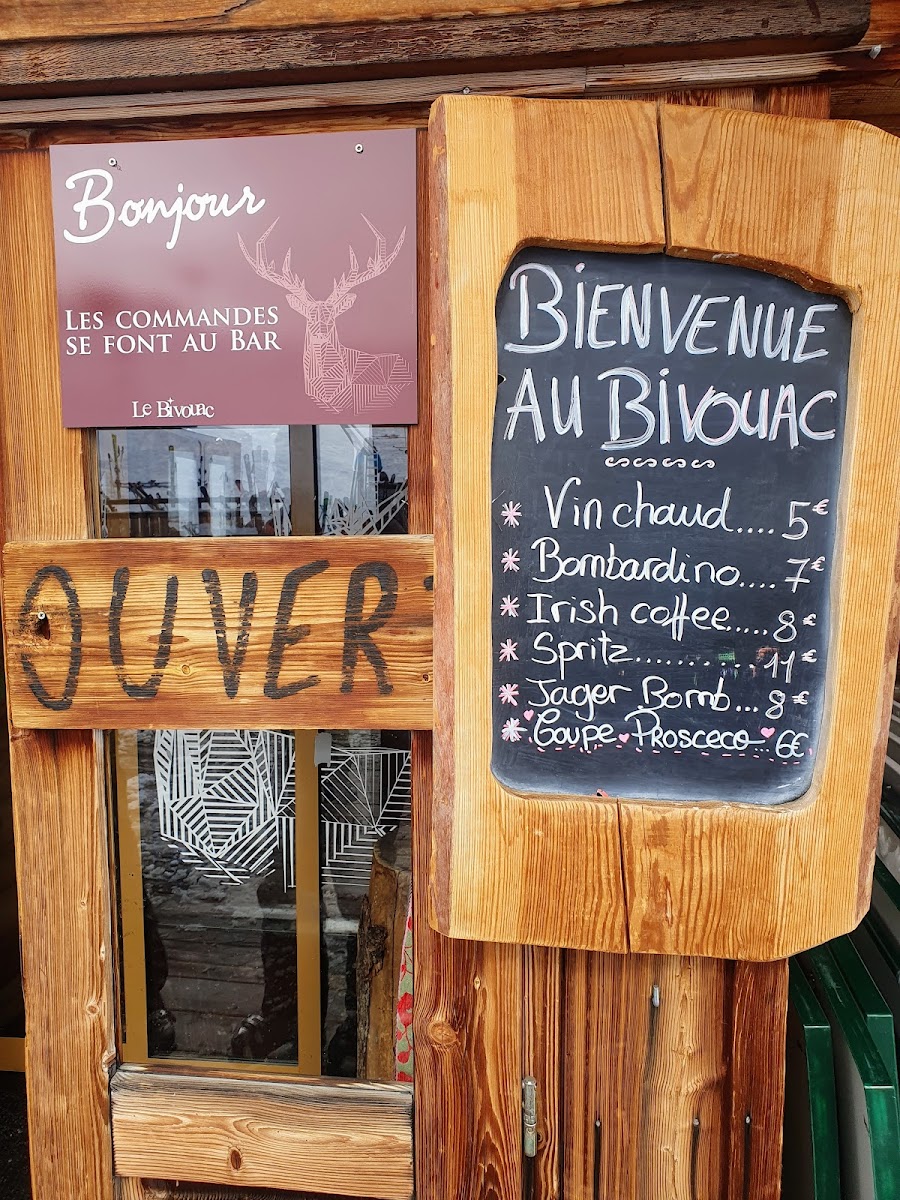 Bonjour
LES COMMANDES
SE FONT AU BAR
LE BIVOUAC
OUVERT
BIENVENUE
AU BIVOUAC
Vin chaud.... 5€
Bombardino.... 7€
Irish coffee..... 8€
Spritz.......... 11€
Jager Bomb... 8€
Coupe Prosceco... 6€